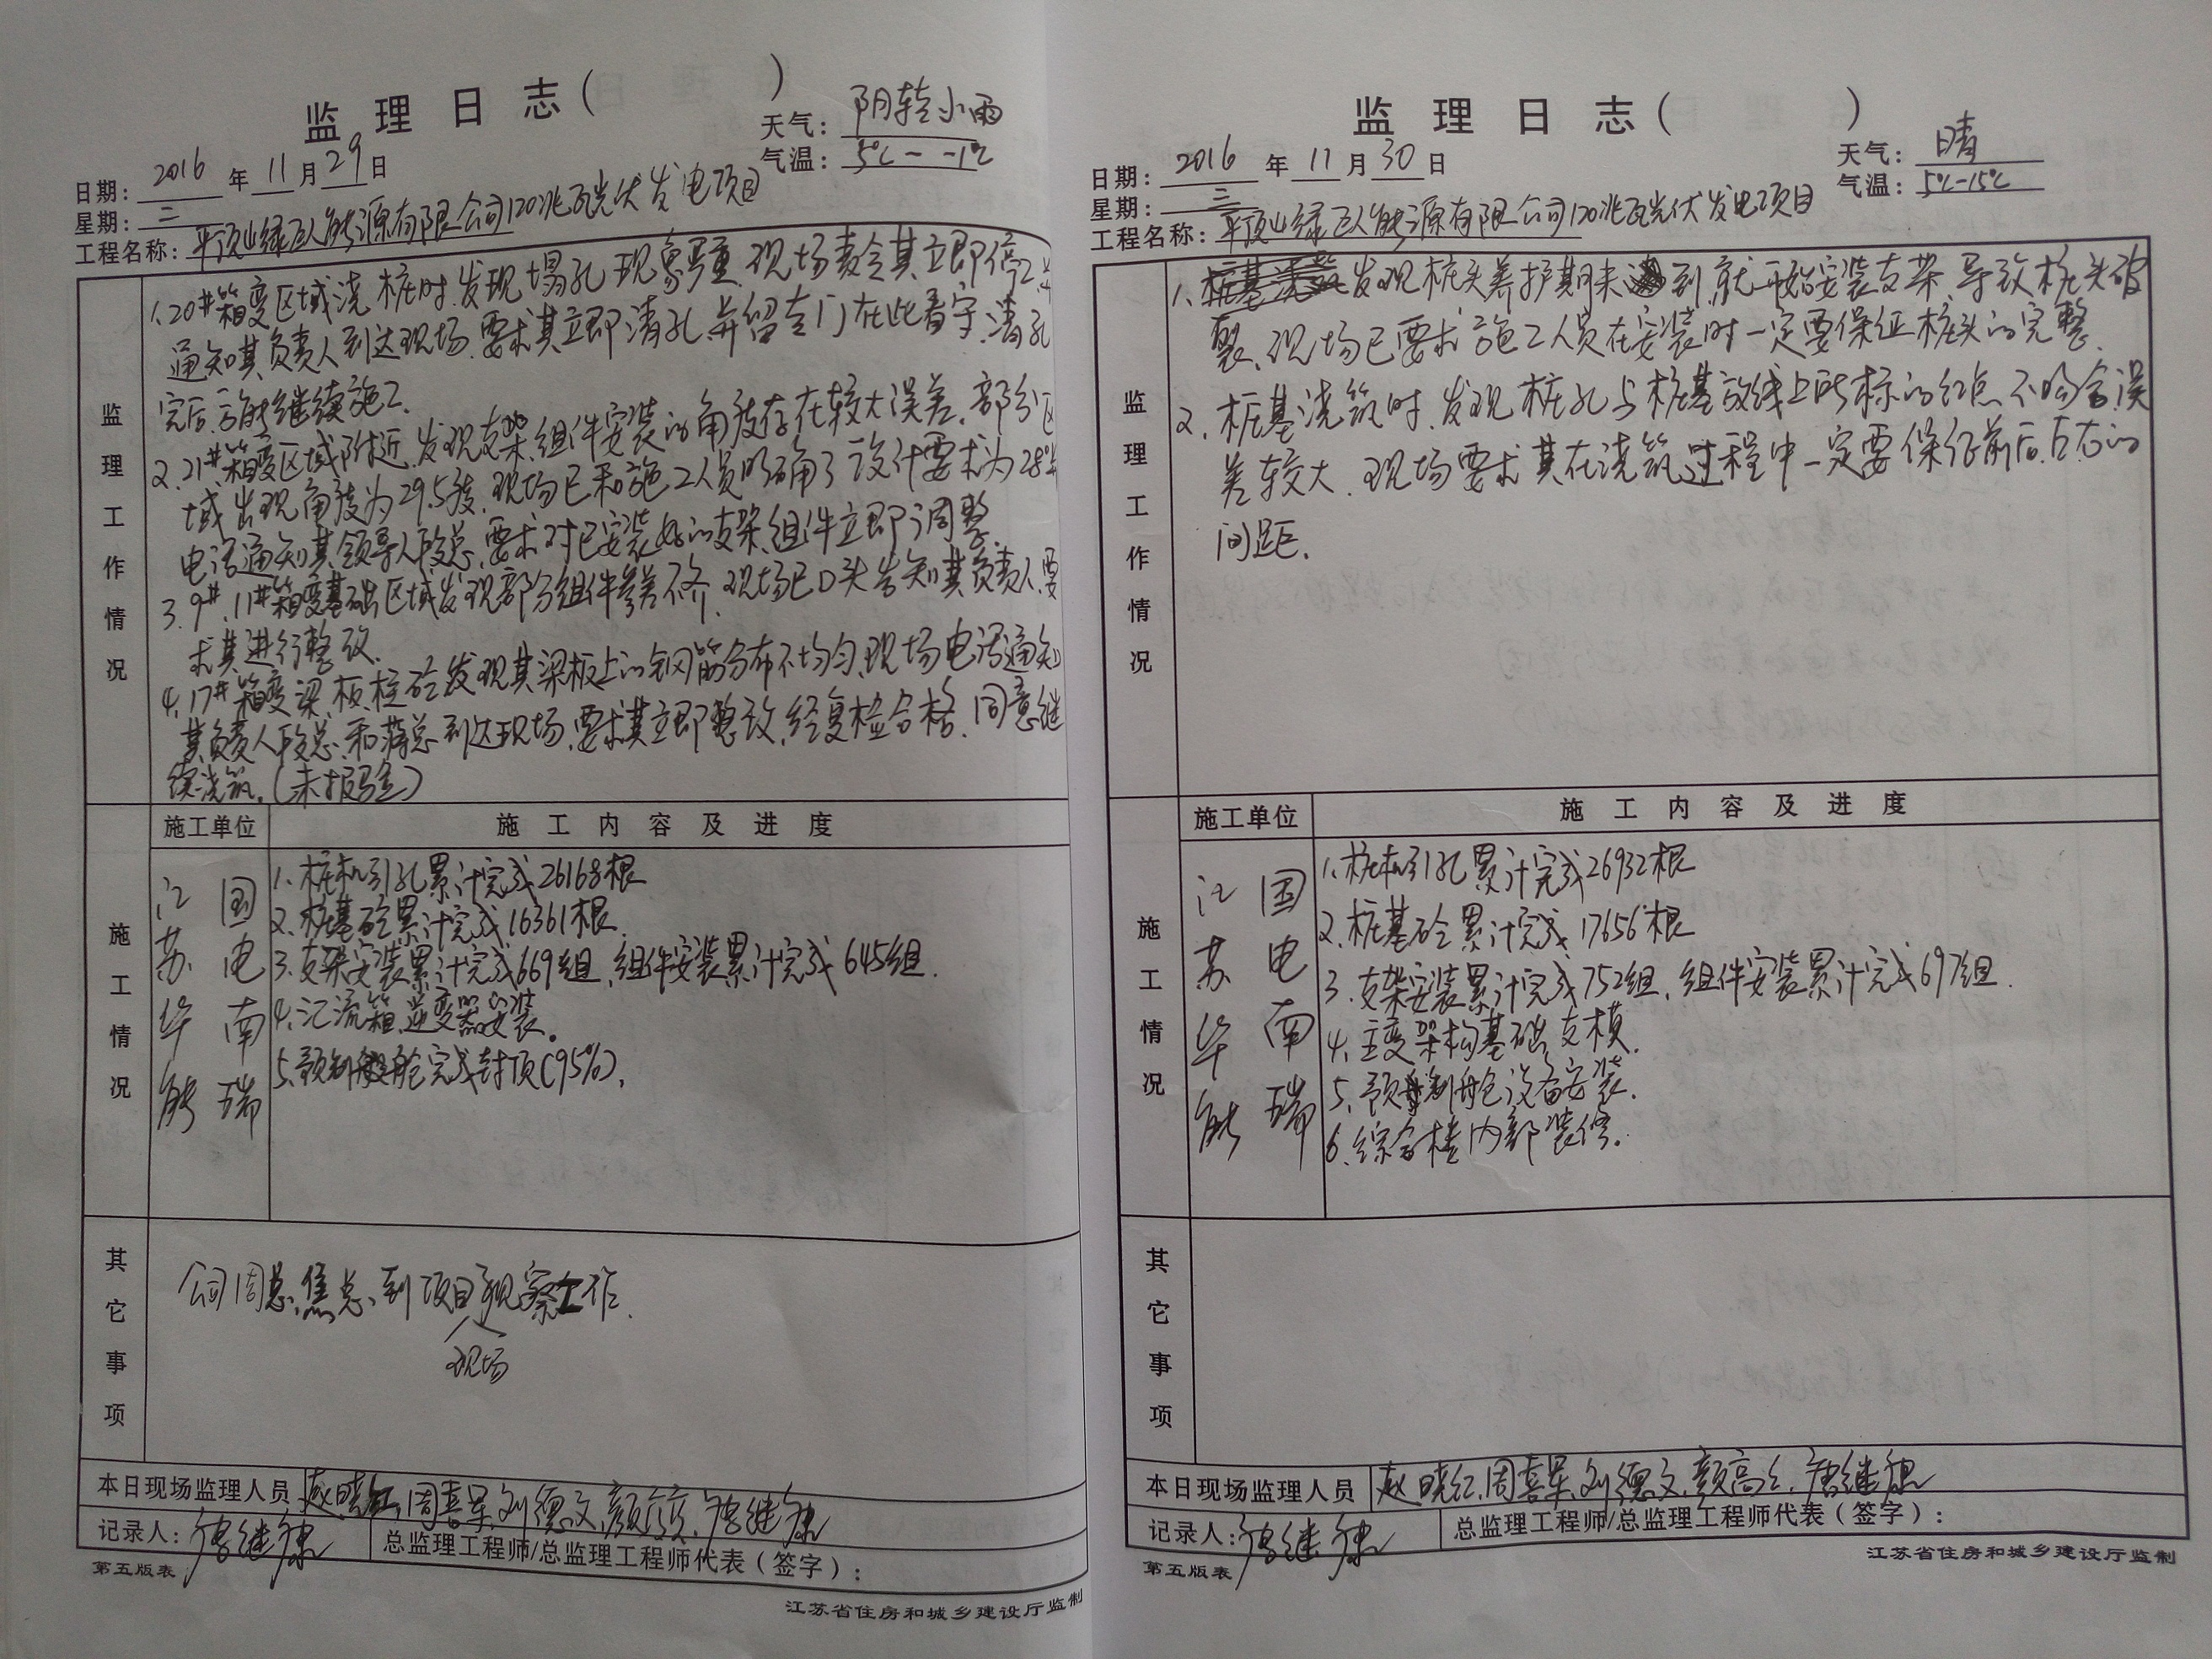 监 理 日 志 （ ）
天气：阴转小雨
日期：2016 年 11 月 29 日
气温：5℃ - -1℃
星期：二
工程名称：平顶山绿巨人能源有限公司120兆瓦光伏发电项目
监理工作情况
1.20#箱变区域浇桩时,发现塌孔现象严重,现场责令其立即停工,
通知其负责人到达现场,要求其立即清孔,并留专门在此看守,清孔
完后,方能继续施工.
2.21#箱变区域附近,发现支架,组件安装的角度存在较大误差,部分区
域出现角度为29.5度,现场已和施工人员明确了设计要求为28
电话通知其领导人段总,要求对已安装好的支架,组件立即调整.
3.9#.11#箱变基础区域发现部分组件参差不齐,现场已口头告知其负责人,要
求其进行整改.
4.17#箱变梁,板,柱砼发现其梁板上的钢筋分布不均匀,现场电话通知
其负责人段总,和蒋总到达现场,要求其立即整改,经复检合格,同意继
续浇筑.(未报验)
施工单位 施 工 内 容 及 进 度
施工情况
江苏华能
国电南瑞
1.桩机引孔累计完成26168根
2.桩基砼累计完成16361根.
3.支架安装累计完成669组,组件安装累计完成645组.
4.汇流箱,逆变器安装.
5.预制舱完成封顶(95%).
其它事项
公司周总,焦总,到项目观察工作.
现场
本日现场监理人员 赵晓红,周喜军,刘德文,颜高,唐继康
记录人：唐继康 总监理工程师/总监理工程师代表（签字）：
第五版表
江苏省住房和城乡建设厅监制
监 理 日 志 （ ）
天气：晴
日期：2016 年 11 月 30 日
气温：5℃-15℃
星期：三
工程名称：平顶山绿巨人能源有限公司120兆瓦光伏发电项目
监理工作情况
1.发现桩头养护期未到,就开始安装支架,导致桩头破
裂,现场已要求施工人员在安装时一定要保证桩头的完整.
2.桩基浇筑时,发现桩孔与桩基放线上所标的红点不吻合,误
差较大,现场要求其在浇筑过程中一定要保证前后,左右的
间距.
施工单位 施 工 内 容 及 进 度
施工情况
江苏华能
国电南瑞
1.桩机引孔累计完成26932根
2.桩基砼累计完成17656根
3.支架安装累计完成752组,组件安装累计完成697组.
4.主变架构基础支模.
5.预制舱设备安装.
6.综合楼内部装修.
其它事项
本日现场监理人员 赵晓红,周喜军,刘德文,颜高,唐继康
记录人：唐继康 总监理工程师/总监理工程师代表（签字）：
第五版表
江苏省住房和城乡建设厅监制